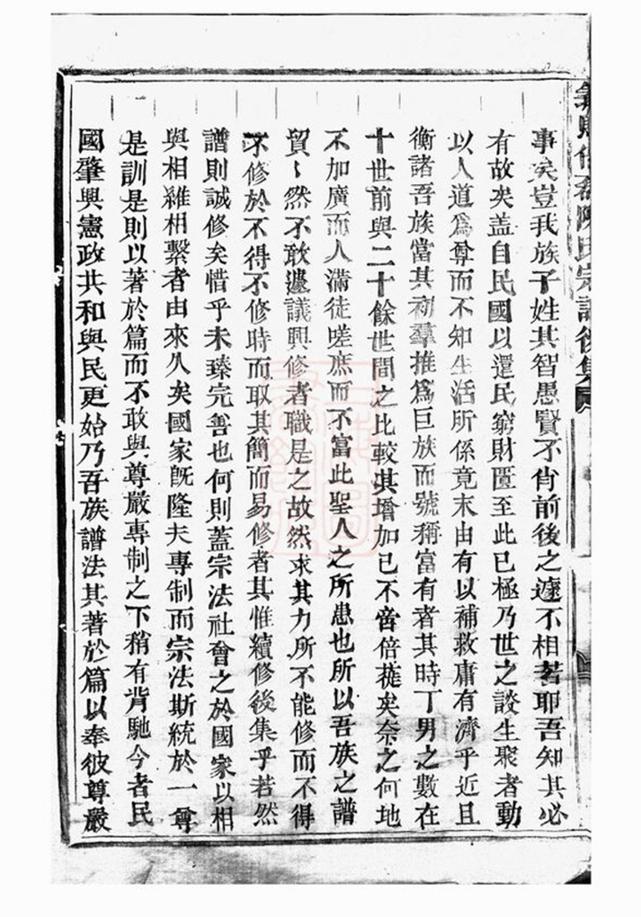 陳氏宗譜後集
事矣豈我族子姓其智愚賢不肖前後之遽不相若耶吾知其必
有故矣盖自民國以還民窮財匱至此已極乃世之談生聚者動
以人道爲尊而不知生活所係竟末由有以補救庸有濟乎近且
衡諸吾族當其初羣推爲巨族而號稱富有者其時丁男之數在
十世前與二十餘世間之比較其增加已不啻倍蓰矣奈之何地
不加廣而人滿徒嗟庶而不富此聖人之所患也所以吾族之譜
貿〻然不敢遽議興修者職是之故然求其力所不能修而不得
不修於不得不修時而取其簡而易修者其惟續修後集乎若然
譜則誠修矣惜乎未臻完善也何則蓋宗法社會之於國家以相
與相維相繫者由來久矣國家旣隆夫專制而宗法斯統於一尊
是訓是則以著於篇而不敢與尊嚴專制之下稍有背馳今者民
國肇興憲政共和與民更始乃吾族譜法其著於篇以奉彼尊嚴